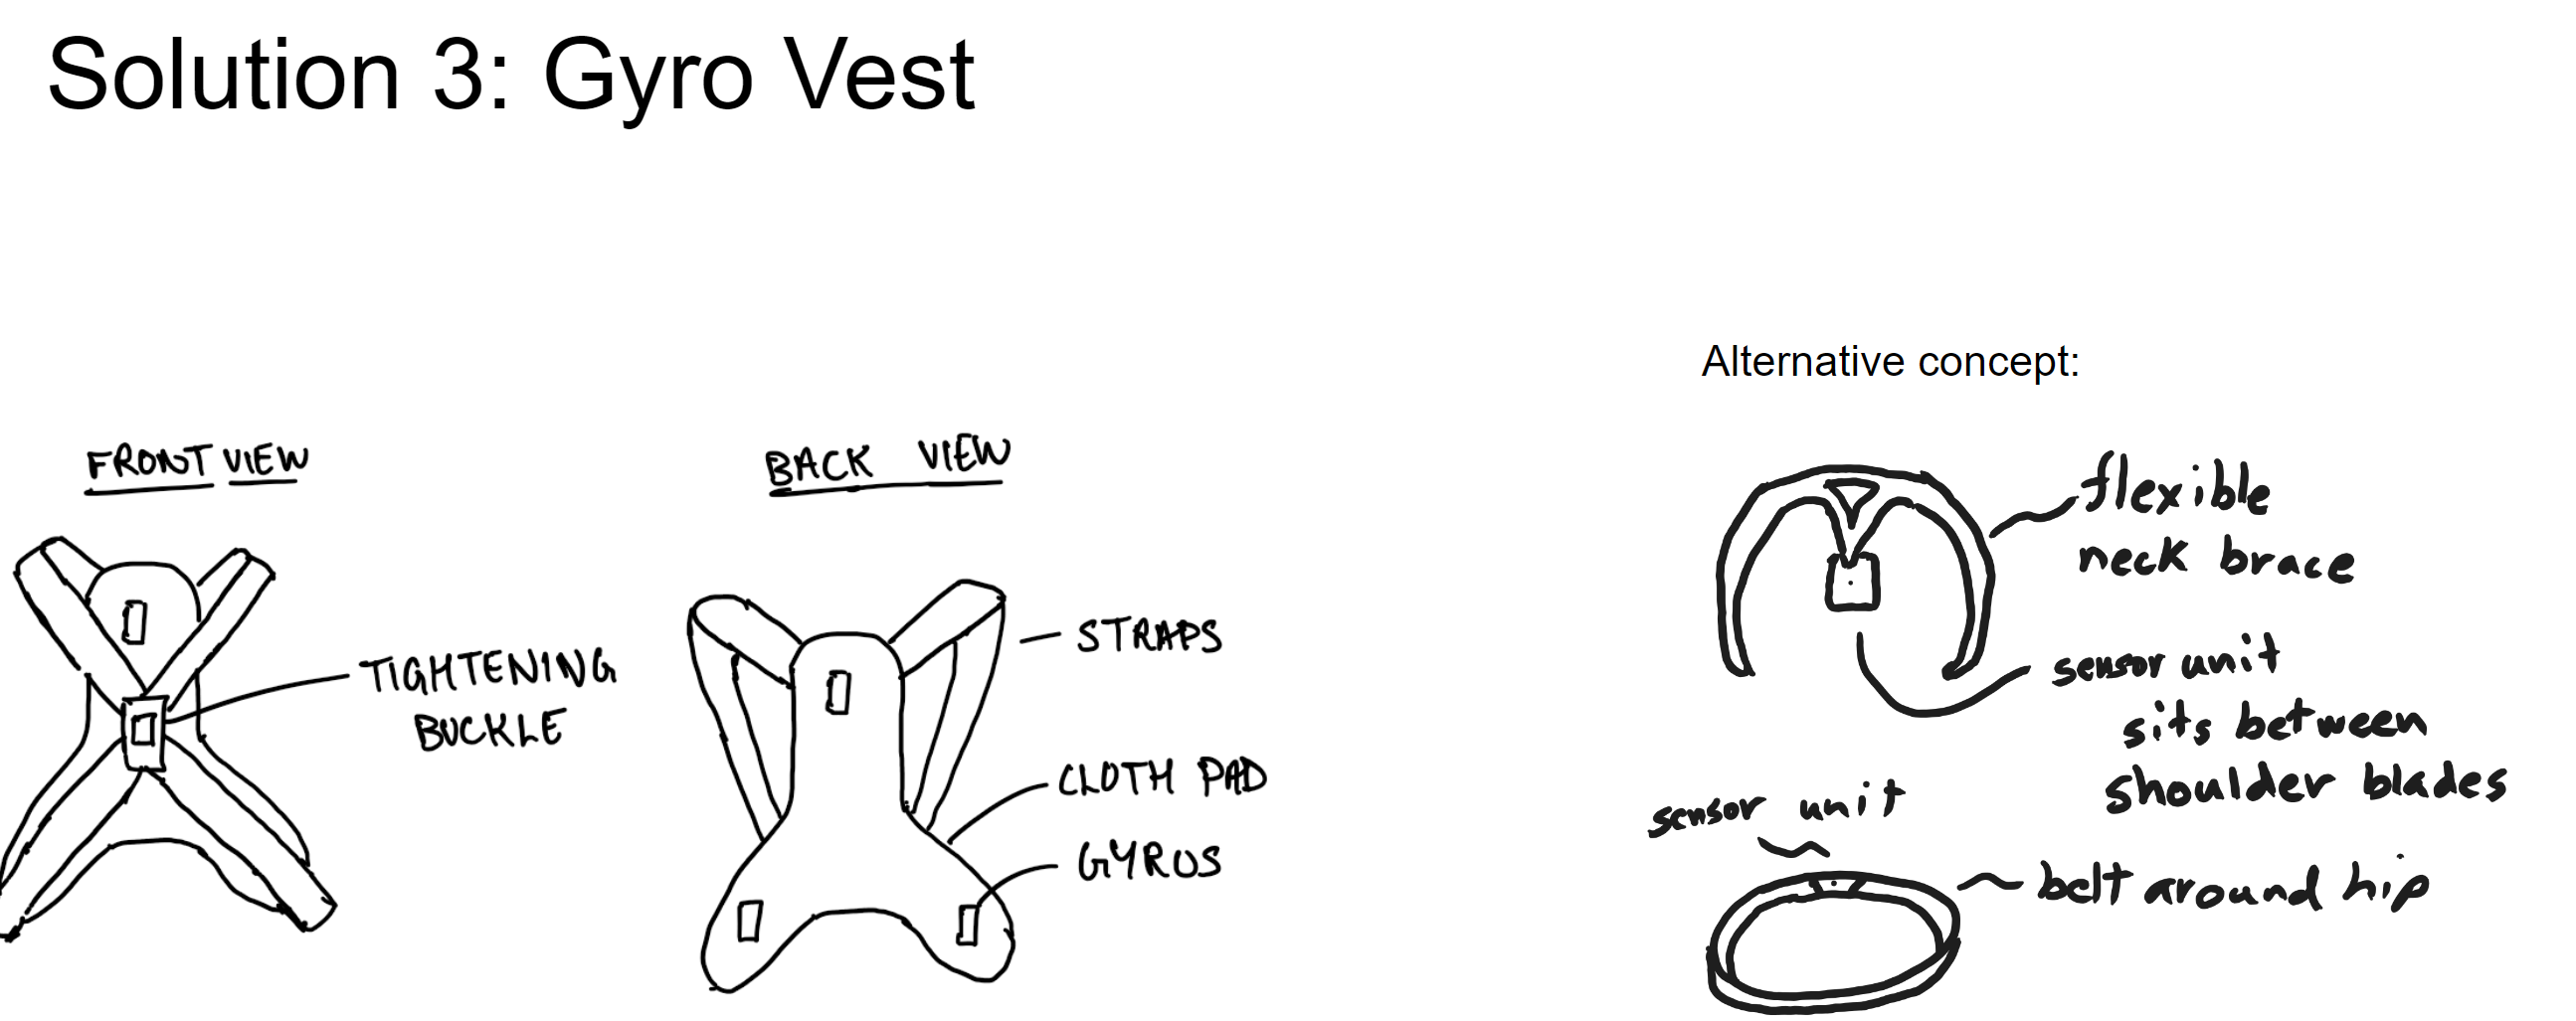 Solution 3: Gyro Vest
FRONT VIEW
TIGHTENING
BUCKLE
BACK VIEW
STRAPS
CLOTH PAD
GYROS
Alternative concept:
flexible
neck brace
sensor unit
sits between
shoulder blades
sensor unit
belt around hip